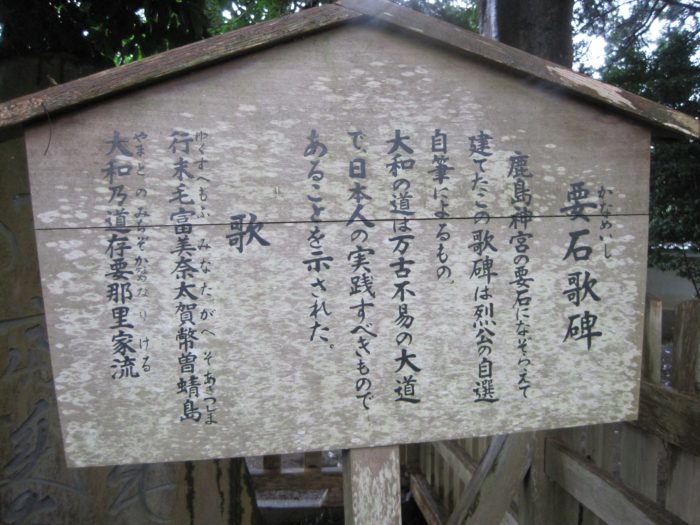 かなめいし
要石歌碑
鹿島神宮の要石になぞらえて
建てたこの歌碑は烈公の自選
自筆によるもの。
大和の道は万古不易の大道
で、日本人の実践すべきもので
あることを示された。
歌
ゆくすへもふみなたがへそあきつしま
行末毛富美奈太賀幣曽蜻島
やまとのみちぞかなめなりける
大和乃道存要那里家流